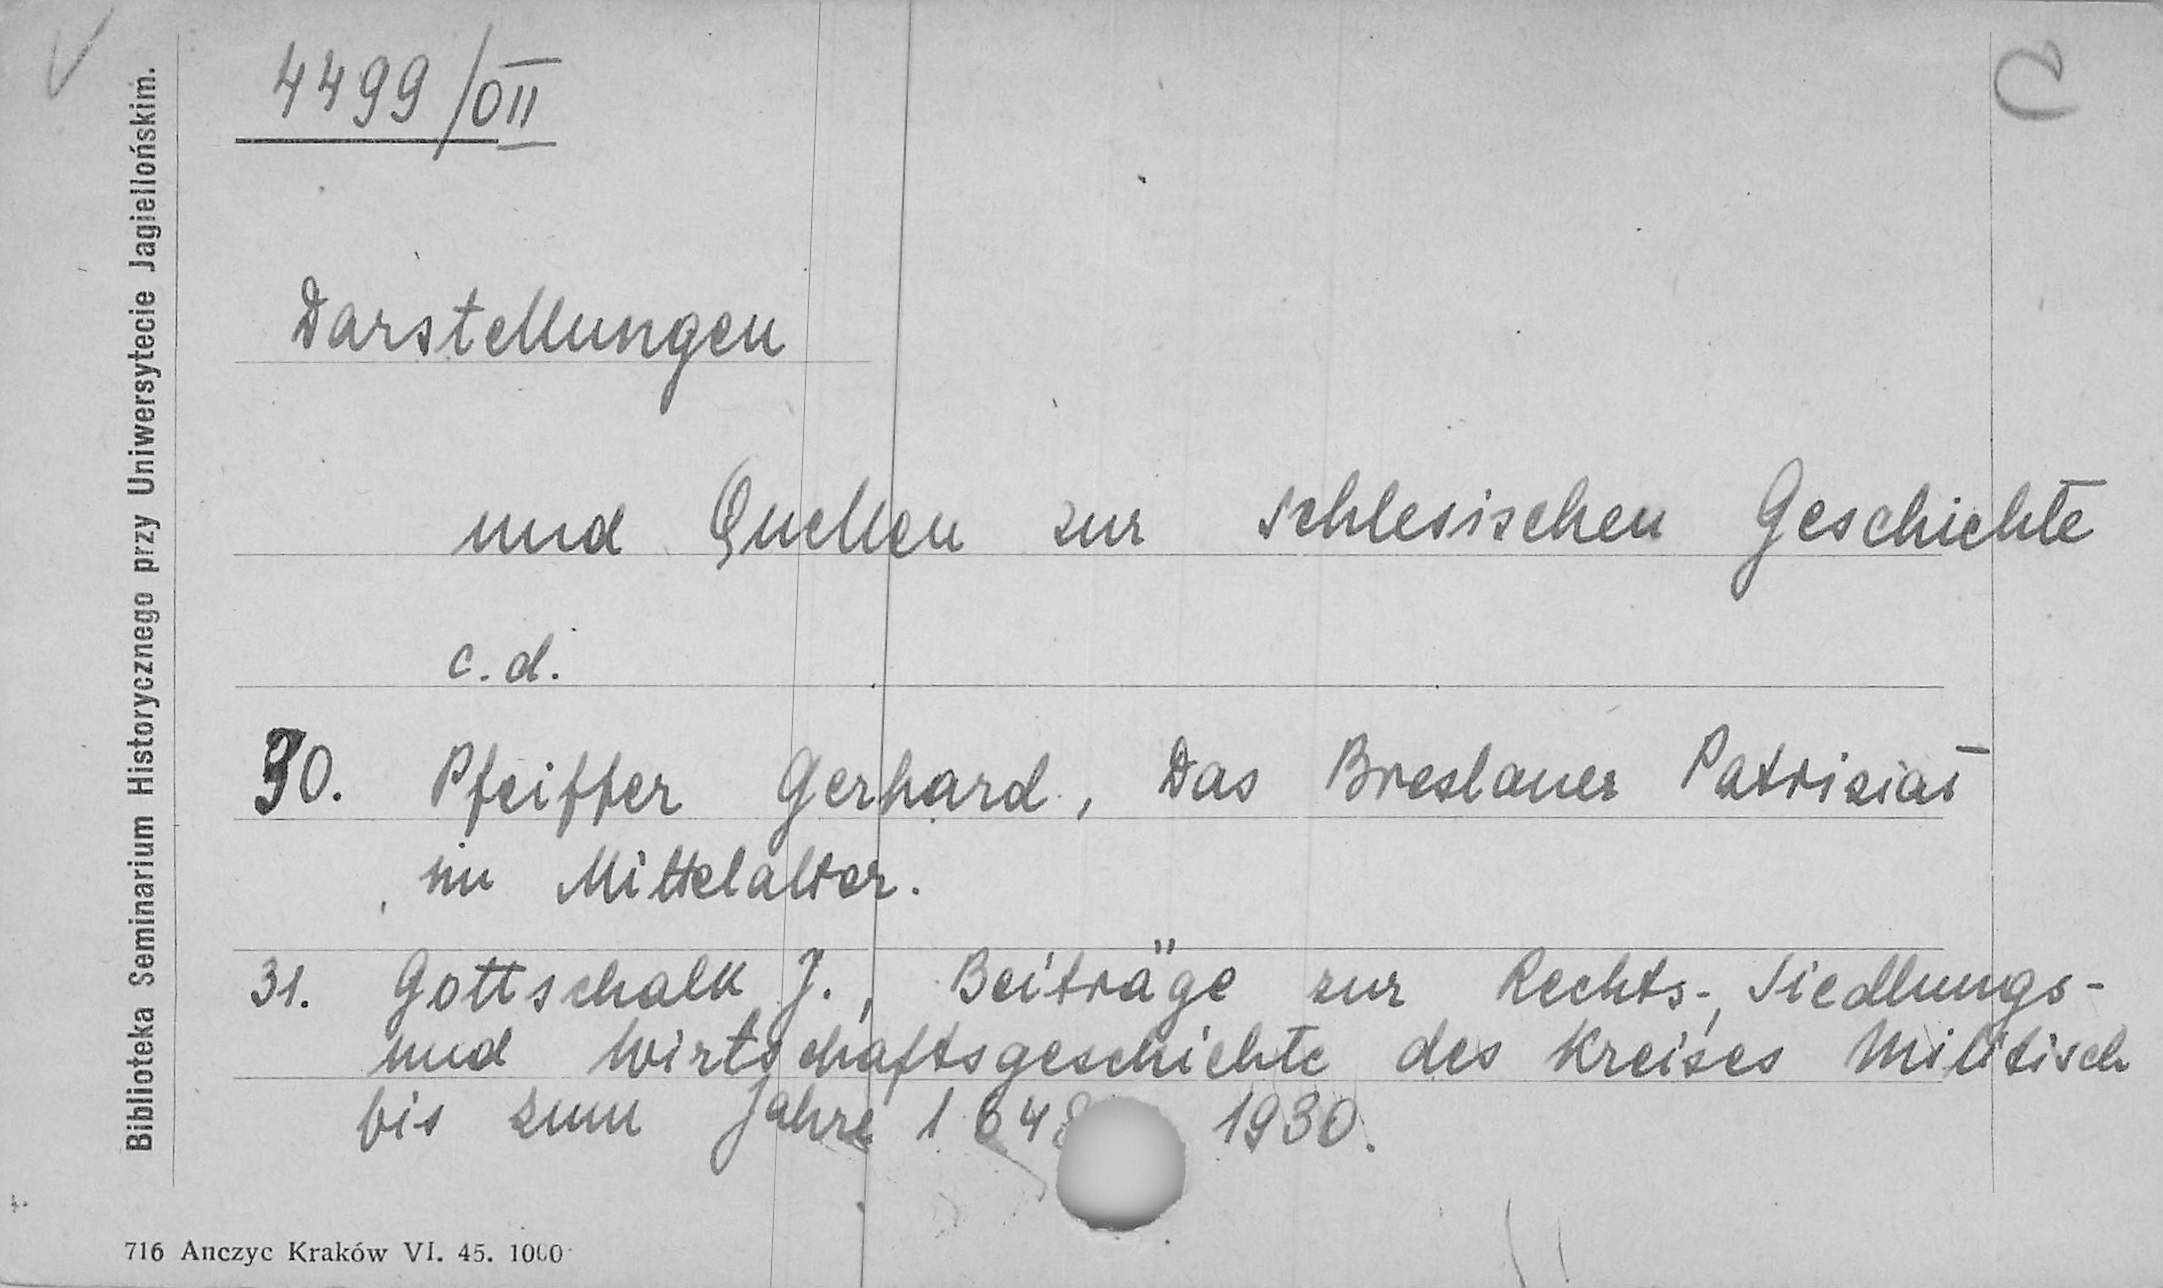 4499/OII
Darstellungen
und Quellen zur schlesischen Geschichte
c.d.
30. Pfeiffer Gerhard, Das Breslauer Patriziat
im Mittelalter.
31. Gottschalk J., Beiträge zur Rechts-, Siedlungs-
und Wirtschaftsgeschichte des Kreises Militisch
bis zum Jahre 1648 1930.
Biblioteka Seminarium Historycznego przy Uniwersytecie Jagiellońskim.
716 Anczyc Kraków VI. 45. 1000